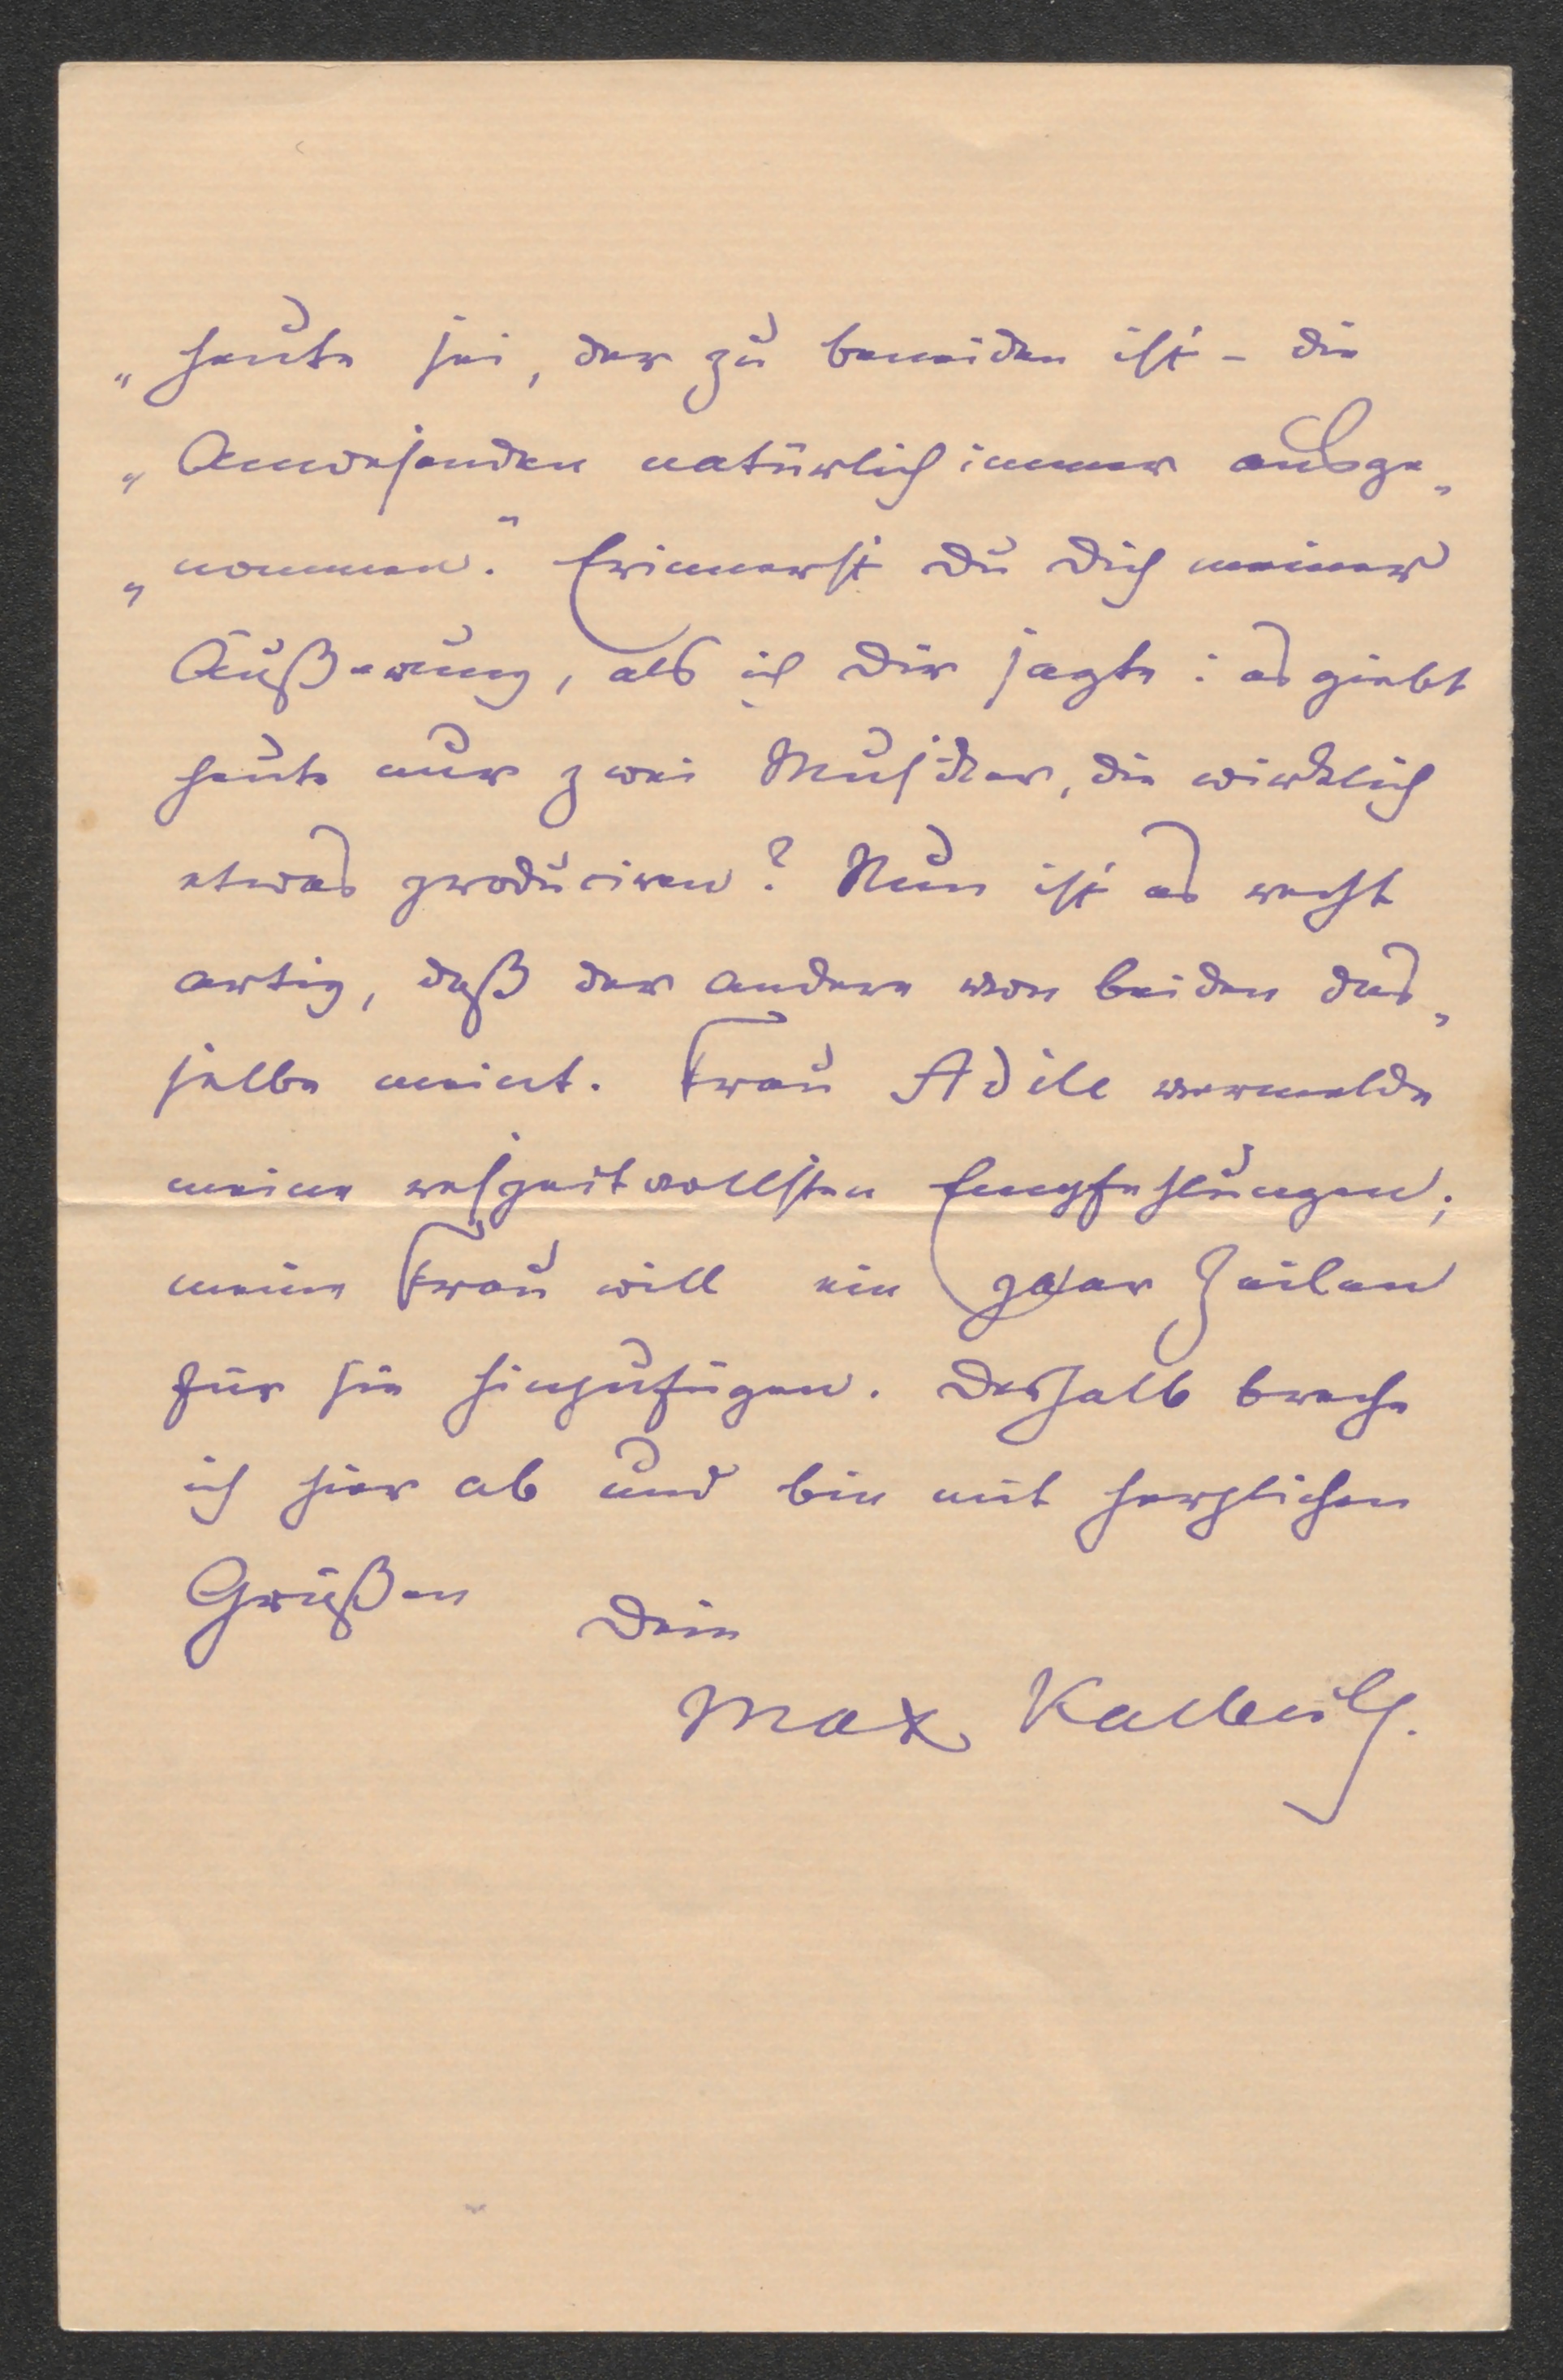 „heute sei, der zu beneiden ist – die
„Anwesenden natürlich immer ausge„
„nommen.“ Erinnerst Du Dich meiner
Äußerung, als ich Dir sagte: es giebt
heute nur zwei Musiker, die wirklich
etwas produciren? Nun ist es recht
artig, daß der andere von beiden das„
selbe meint. Frau Adile vermelde
meine respectvollsten Empfehlungen;
meine Frau will ein paar Zeilen
für sie hinzufügen. Deshalb breche
ich hier ab und bin mit herzlichen
Grüßen Dein
Max Kalbeck.